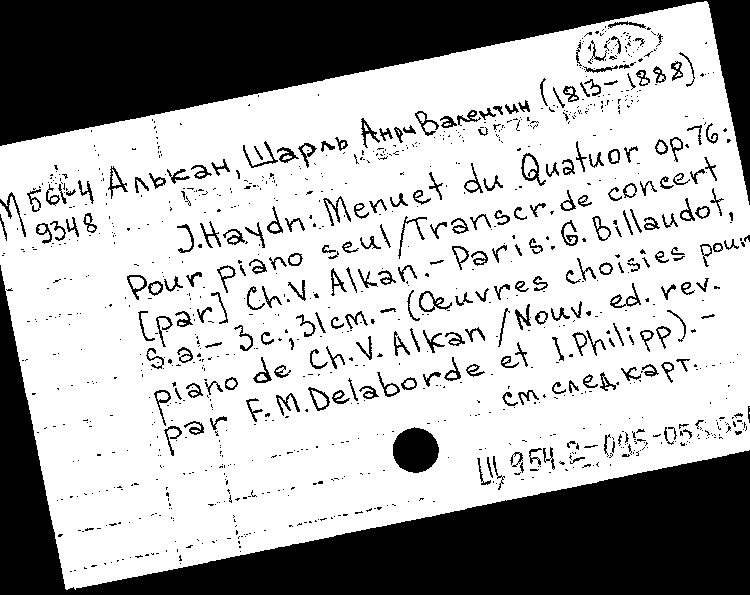 203
М 561-4
9348
Алькан, Шарль Анри Валентин (1813-1888).
J.Haydn: Menuet du Quatuor op.76:
Pour piano seul/Transcr. de concert
[par] Ch.V. Alkan.-Paris: G. Billaudot,
S.a.- 3 c.; 31 cm. - (Œuvres choisies pour
piano de Ch.V. Alkan / Nouv. ed. rev.
par F.M.Delaborde et I.Philipp).-
см. след. карт.
Щ 954.2-095-055.55